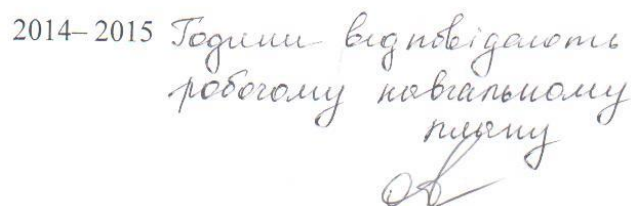 2014–2015 Години відповідають
робочому навчальному
плану